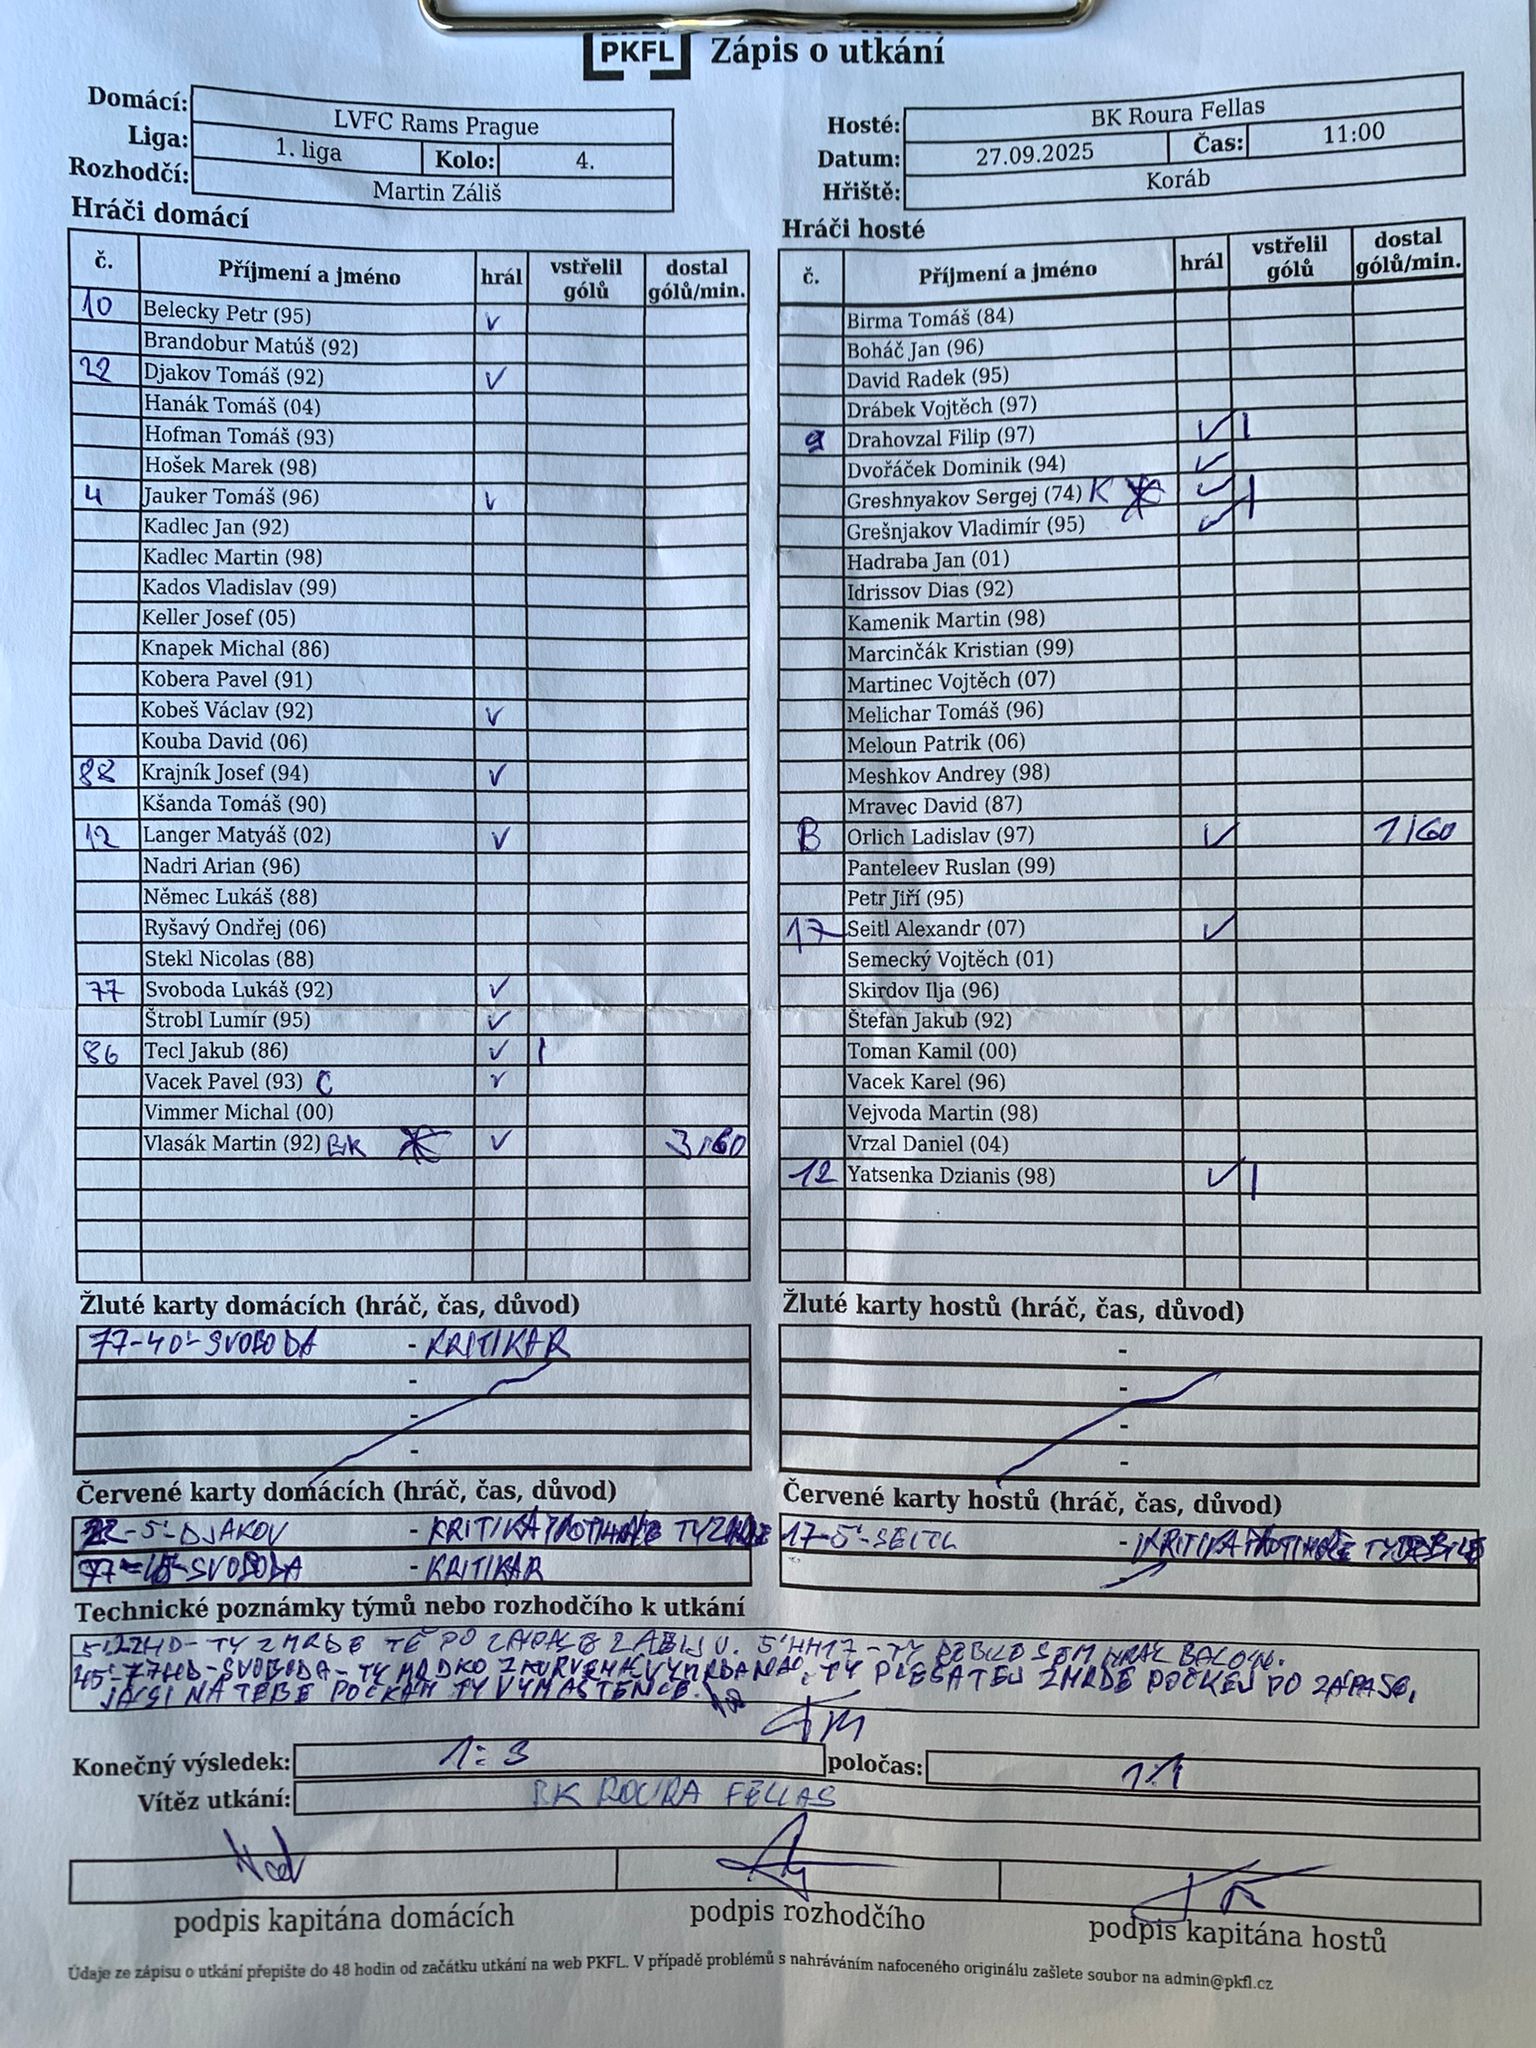 PKFL Zápis o utkání
Domácí: LVFC Rams Prague
Liga: 1. liga Kolo: 4.
Rozhodčí: Martin Záliš
Hosté: BK Roura Fellas
Datum: 27.09.2025 Čas: 11:00
Hřiště: Koráb
Hráči domácí
č. Příjmení a jméno hrál vstřelil gólů dostal gólů/min.
10 Belecky Petr (95) ✓
Brandobur Matúš (92)
22 Djakov Tomáš (92) ✓
Hanák Tomáš (04)
Hofman Tomáš (93)
Hošek Marek (98)
4 Jauker Tomáš (96) ✓
Kadlec Jan (92)
Kadlec Martin (98)
Kados Vladislav (99)
Keller Josef (05)
Knapek Michal (86)
Kobera Pavel (91)
Kobeš Václav (92) ✓
Kouba David (06)
88 Krajník Josef (94) ✓
Kšanda Tomáš (90)
12 Langer Matyáš (02) ✓
Nadri Arian (96)
Němec Lukáš (88)
Ryšavý Ondřej (06)
Stekl Nicolas (88)
77 Svoboda Lukáš (92) ✓
Štrobl Lumír (95) ✓
86 Tecl Jakub (86) ✓ I
Vacek Pavel (93) C ✓
Vimmer Michal (00)
Vlasák Martin (92) BK ✓ 3/60
Hráči hosté
č. Příjmení a jméno hrál vstřelil gólů dostal gólů/min.
Birma Tomáš (84)
Boháč Jan (96)
David Radek (95)
Drábek Vojtěch (97)
9 Drahovzal Filip (97) ✓ I
Dvořáček Dominik (94) ✓
Greshnyakov Sergej (74) K ✓ I
Grešnjakov Vladimír (95) ✓
Hadraba Jan (01)
Idrissov Dias (92)
Kamenik Martin (98)
Marcinčák Kristian (99)
Martinec Vojtěch (07)
Melichar Tomáš (96)
Meloun Patrik (06)
Meshkov Andrey (98)
Mravec David (87)
B Orlich Ladislav (97) ✓ 1/60
Panteleev Ruslan (99)
Petr Jiří (95)
17 Seitl Alexandr (07) ✓
Semecký Vojtěch (01)
Skirdov Ilja (96)
Štefan Jakub (92)
Toman Kamil (00)
Vacek Karel (96)
Vejvoda Martin (98)
Vrzal Daniel (04)
12 Yatsenka Dzianis (98) ✓ I
Žluté karty domácích (hráč, čas, důvod)
77-40'-SVOBODA - KRITIKA R
-
-
-
Žluté karty hostů (hráč, čas, důvod)
-
-
-
-
Červené karty domácích (hráč, čas, důvod)
22-5'-DJAKOV - KRITIKA
77-45'-SVOBODA - KRITIKA R
Červené karty hostů (hráč, čas, důvod)
17-5'-SEITL - KRITIKA
Technické poznámky týmů nebo rozhodčího k utkání
5'22HD- TY ZMRDE TĚ PO ZÁPASE ZABIJU. 5'HH17-TY DEBILE SEM HRÁL BALON.
45'-77HD-SVOBODA-TY TY PLEŠATEJ ZMRDE POČKEJ PO ZÁPASE,
JÁ SI NA TEBE POČKÁM TY VYMAŠTĚNČE.
Konečný výsledek: 1:3 poločas: 1:1
Vítěz utkání: BK ROURA FELLAS
podpis kapitána domácích podpis rozhodčího podpis kapitána hostů
Údaje ze zápisu o utkání přepište do 48 hodin od začátku utkání na web PKFL. V případě problémů s nahráváním nafoceného originálu zašlete soubor na admin@pkfl.cz